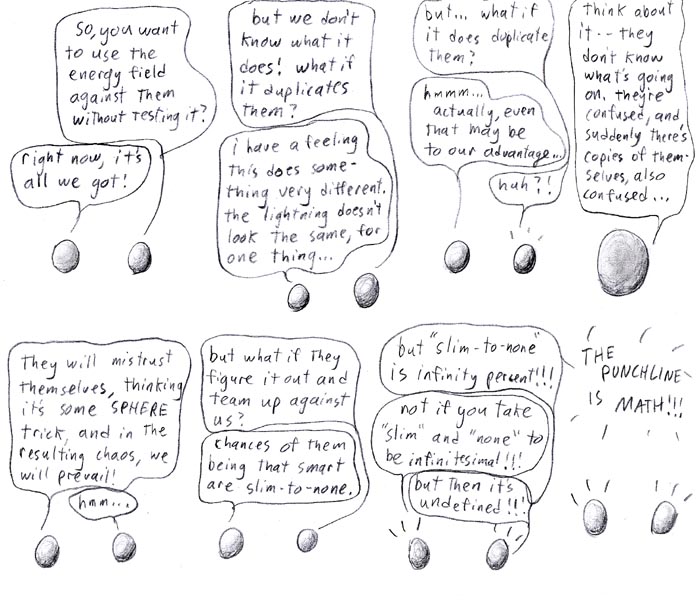 So, you want
to use the
energy field
against Them
without testing it?
right now, it's
all we got!
but we don't
know what it
does! what if
it duplicates
Them?
i have a feeling
This does some-
thing very different.
the lightning doesn't
look the same, for
one thing...
but... what if
it does duplicate
Them?
hmmm...
actually, even
That may be
to our advantage...
huh?!
Think about
it -- they
don't know
what's going
on. they're
confused, and
suddenly there's
copies of them-
selves, also
confused...
They will mistrust
themselves, thinking
it's some SPHERE
trick, and in The
resulting chaos, we
will prevail!
hmm...
but what if They
figure it out and
team up against
us?
Chances of them
being that smart
are slim-to-none.
but "slim-to-none"
is infinity percent!!!
not if you take
"slim" and "none" to
be infinitesimal!!!
but Then it's
undefined!!!
THE
PUNCHLINE
IS MATH!!!